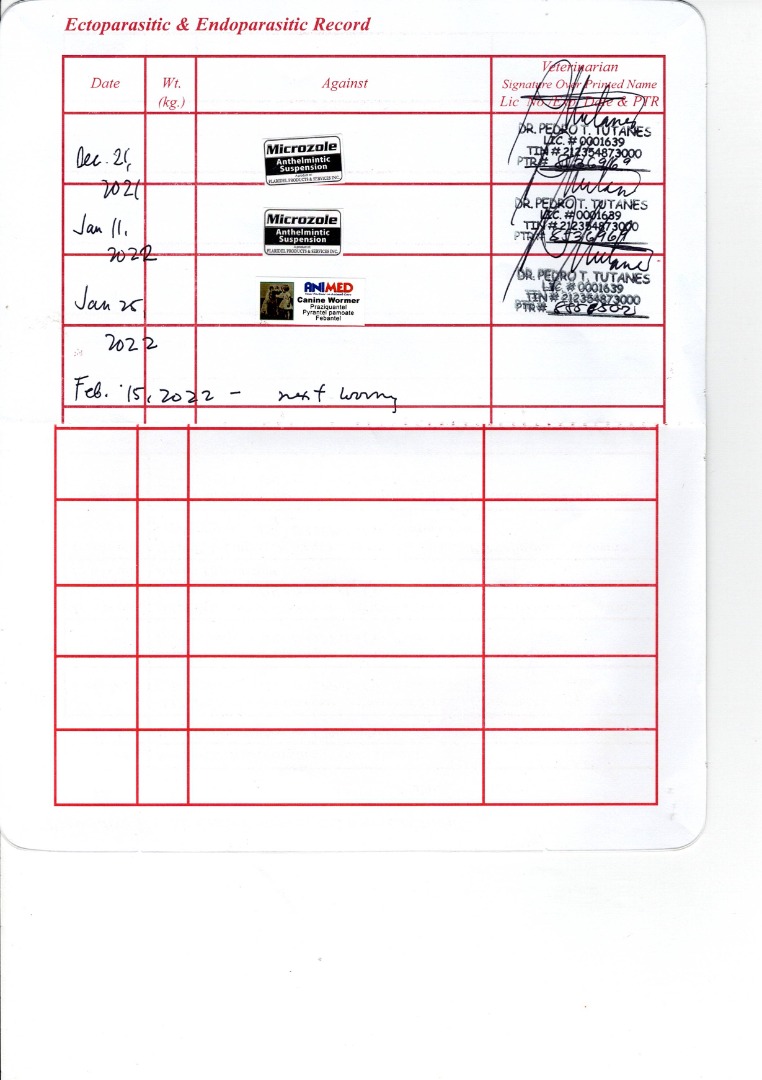 Ectoparasitic & Endoparasitic Record
Date
Wt.
(kg.)
Against
Veterinarian
Signature Over Printed Name
Lic No./Exp. Date & PTR
Dec. 21,
2021
Microzole
Anthelmintic
Suspension
PLARIDEL PRODUCTS & SERVICES INC.
DR. PEDRO T. TUTANES
LIC. # 0001639
TIN # 212354873000
PTR#
Jan 11,
2022
Microzole
Anthelmintic
Suspension
PLARIDEL PRODUCTS & SERVICES INC.
DR. PEDRO T. TUTANES
LIC. # 0001639
TIN # 212354873000
PTR#
Jan 25,
2022
ANIMED
Canine Wormer
Praziquantel
Pyrantel pamoate
Febantel
DR. PEDRO T. TUTANES
LIC. # 0001639
TIN # 212354873000
PTR#
Feb. 15, 2022 - next